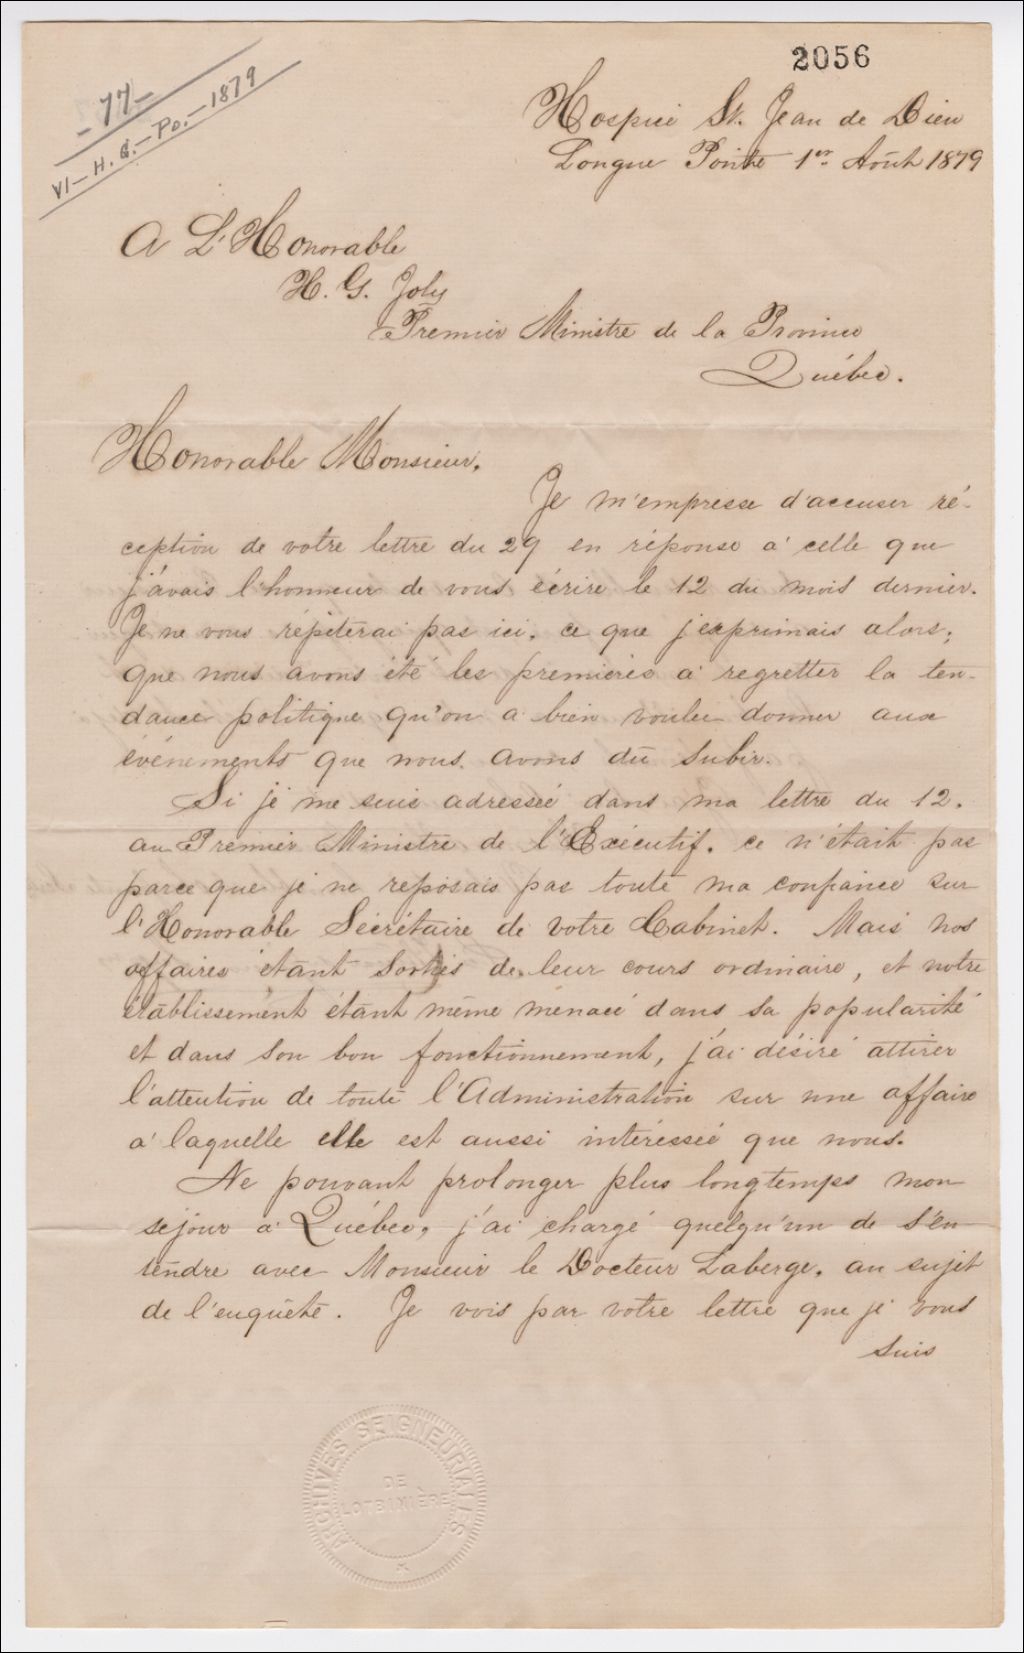 2056
- 77 -
VI - H. G. - Po. - 1879
Hospice St. Jean de Dieu
Longue Pointe 1er Août 1879
A L'Honorable
H. G. Joly
Premier Ministre de la Province
Québec.
Honorable Monsieur,
Je m'empresse d'accuser ré-
ception de votre lettre du 29 en réponse à celle que
j'avais l'honneur de vous écrire le 12 du mois dernier.
Je ne vous répèterai pas ici, ce que j'exprimais alors;
que nous avons été les premières à regretter la ten-
dance politique qu'on a bien voulu donner aux
événements que nous avons dû subir.
Si je me suis adressée dans ma lettre du 12.
au Premier Ministre de l'Exécutif. ce n'était pas
parce que je ne reposais pas toute ma confiance sur
l'Honorable Secrétaire de votre Cabinet. Mais nos
affaires étant sorties de leur cours ordinaire, et notre
établissement étant même menacé dans sa popularité
et dans son bon fonctionnement, j'ai désiré attirer
l'attention de toute l'Administration sur une affaire
à laquelle elle est aussi intéressée que nous.
Ne pouvant prolonger plus longtemps mon
séjour à Québec, j'ai chargé quelqu'un de s'en-
tendre avec Monsieur le Docteur Laberge, au sujet
de l'enquête. Je vois par votre lettre que je vous
suis
ARCHIVES SEIGNEURIALES
DE
LOTBINIÈRE